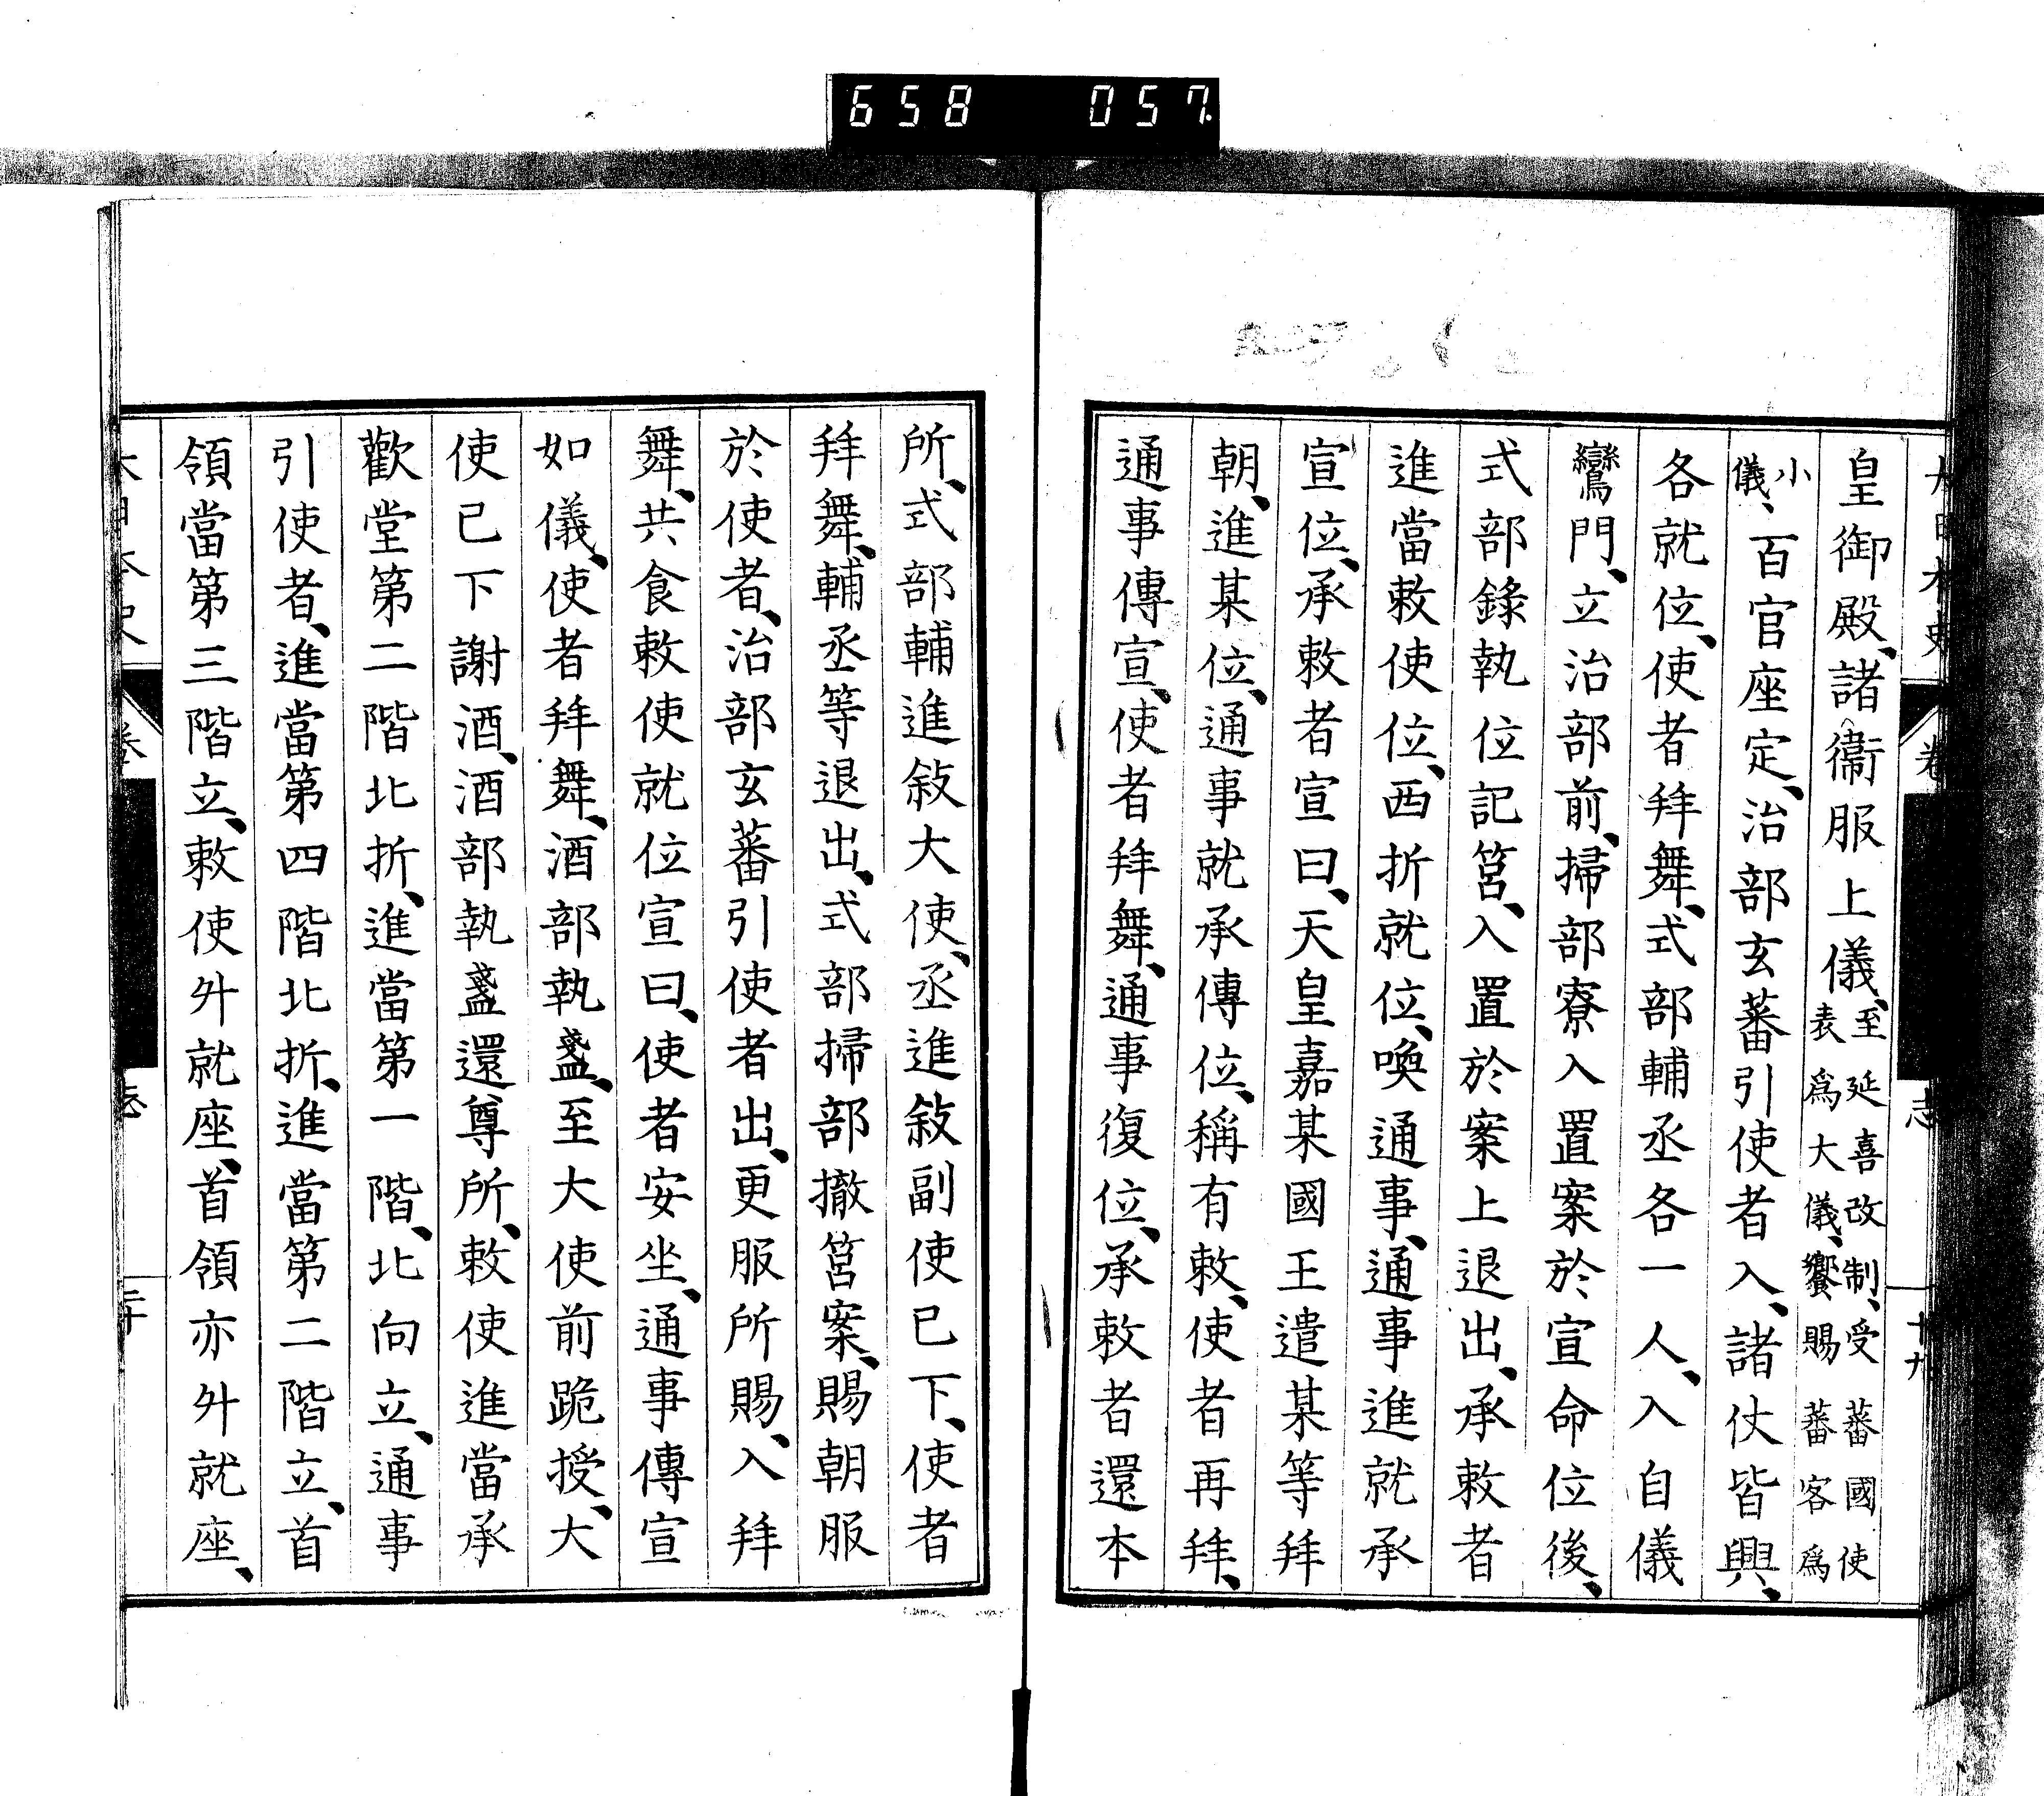 658 057
大日本史 卷 志 十九
皇御殿、諸衞服上儀、至延喜改制、受蕃國使表爲大儀、饗賜蕃客爲
小儀、百官座定、治部玄蕃引使者入、諸仗皆興、
各就位、使者拜舞、式部輔丞各一人、入自儀
鸞門、立治部前、掃部寮入置案於宣命位後、
式部錄執位記筥、入置於案上退出、承敕者
進當敕使位、西折就位、喚通事、通事進就承
宣位、承敕者宣曰、天皇嘉某國王遣某等拜
朝、進某位、通事就承傳位、稱有敕、使者再拜、
通事傳宣、使者拜舞、通事復位、承敕者還本
所、式部輔進敍大使、丞進敍副使已下、使者
拜舞、輔丞等退出、式部掃部撤筥案、賜朝服
於使者、治部玄蕃引使者出、更服所賜、入拜
舞、共食敕使就位宣曰、使者安坐、通事傳宣
如儀、使者拜舞、酒部執盞、至大使前跪授、大
使已下謝酒、酒部執盞還尊所、敕使進當承
歡堂第二階北折、進當第一階、北向立、通事
引使者、進當第四階北折、進當第二階立、首
領當第三階立、敕使升就座、首領亦升就座、
大日本史 卷 志 二十